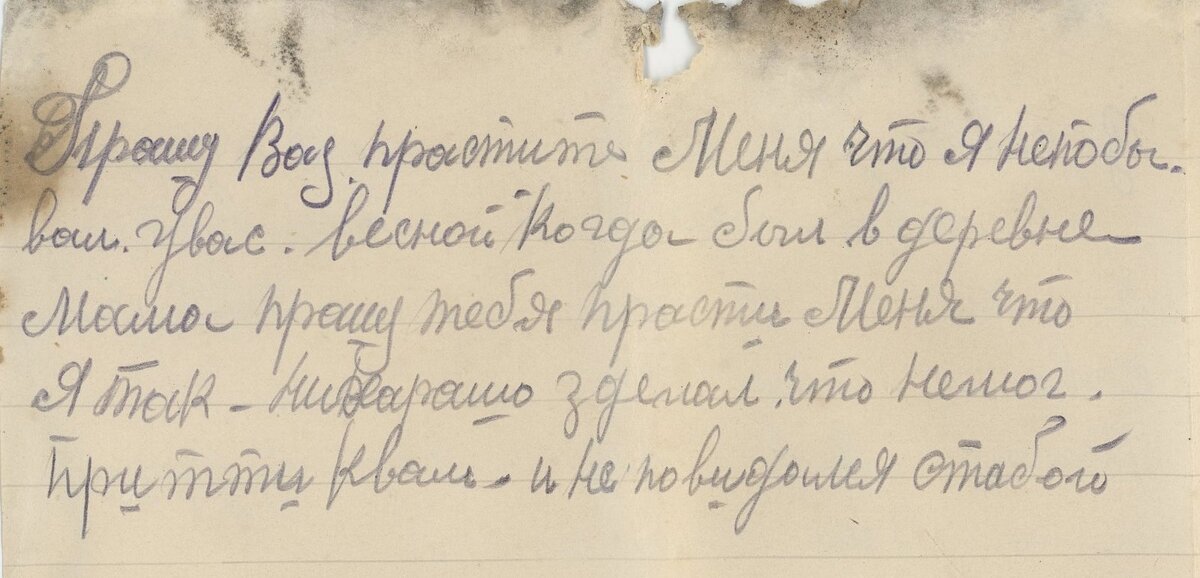 Прашу Вас. прастите Меня что я непобы-
вал. Увас. весной Когда был в деревне
Мама прашу тебя прасти Меня что
Я так - нихарашо зделал. что немог.
притти Квам - и не повидался стабого